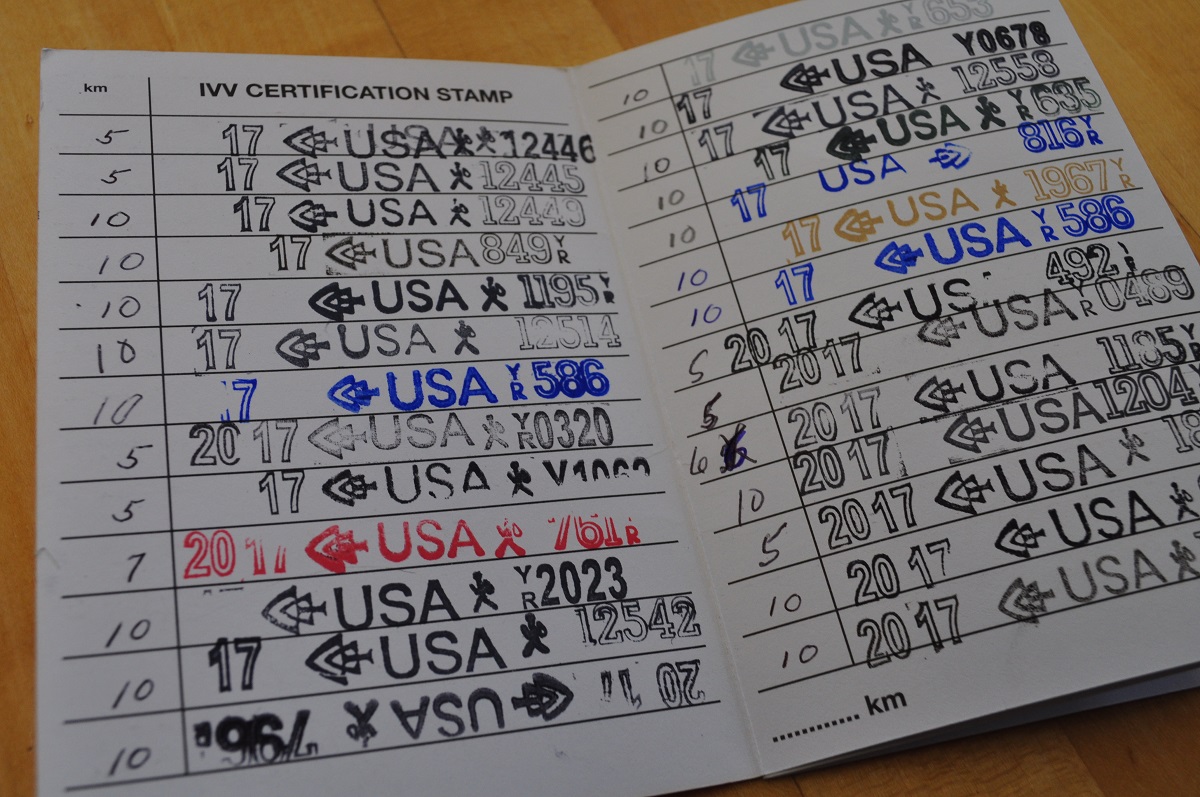 km IVV CERTIFICATION STAMP
5 17 USA 12446
5 17 USA 12445
10 17 USA 12449
10 17 USA 849 YR
10 17 USA 1195 YR
10 17 USA 12514
10 17 USA YR 586
5 2017 USA YR 0320
5 17 USA
7 2017 USA 761 R
10 USA YR 2023
10 17 USA 12542
10 USA 20
17 USA YR 653
10 17 USA Y0678
10 17 USA 12558
10 17 USA YR 635
10 17 USA 816 YR
10 17 USA 1967 YR
10 17 USA YR 586
5 2017 US 492
5 2017 USA YR 0489
6 2017 USA 1195 YR
10 2017 USA 1204 YR
5 2017 USA
10 2017 USA
10 2017 USA
............ km